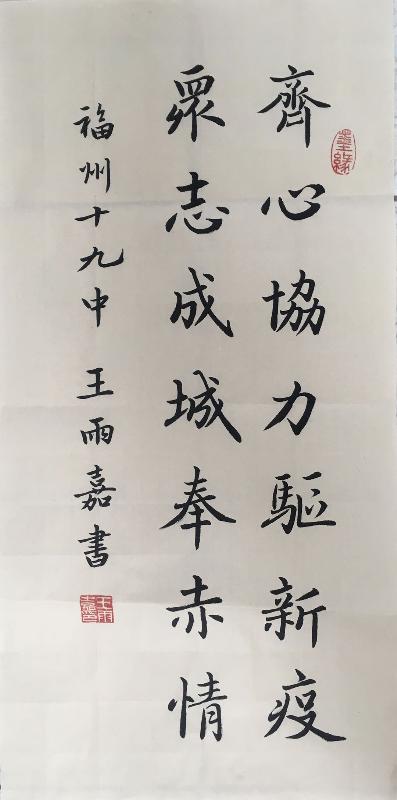 齊心協力驅新疫
墨緣
眾志成城奉赤情
福州十九中 王雨嘉書